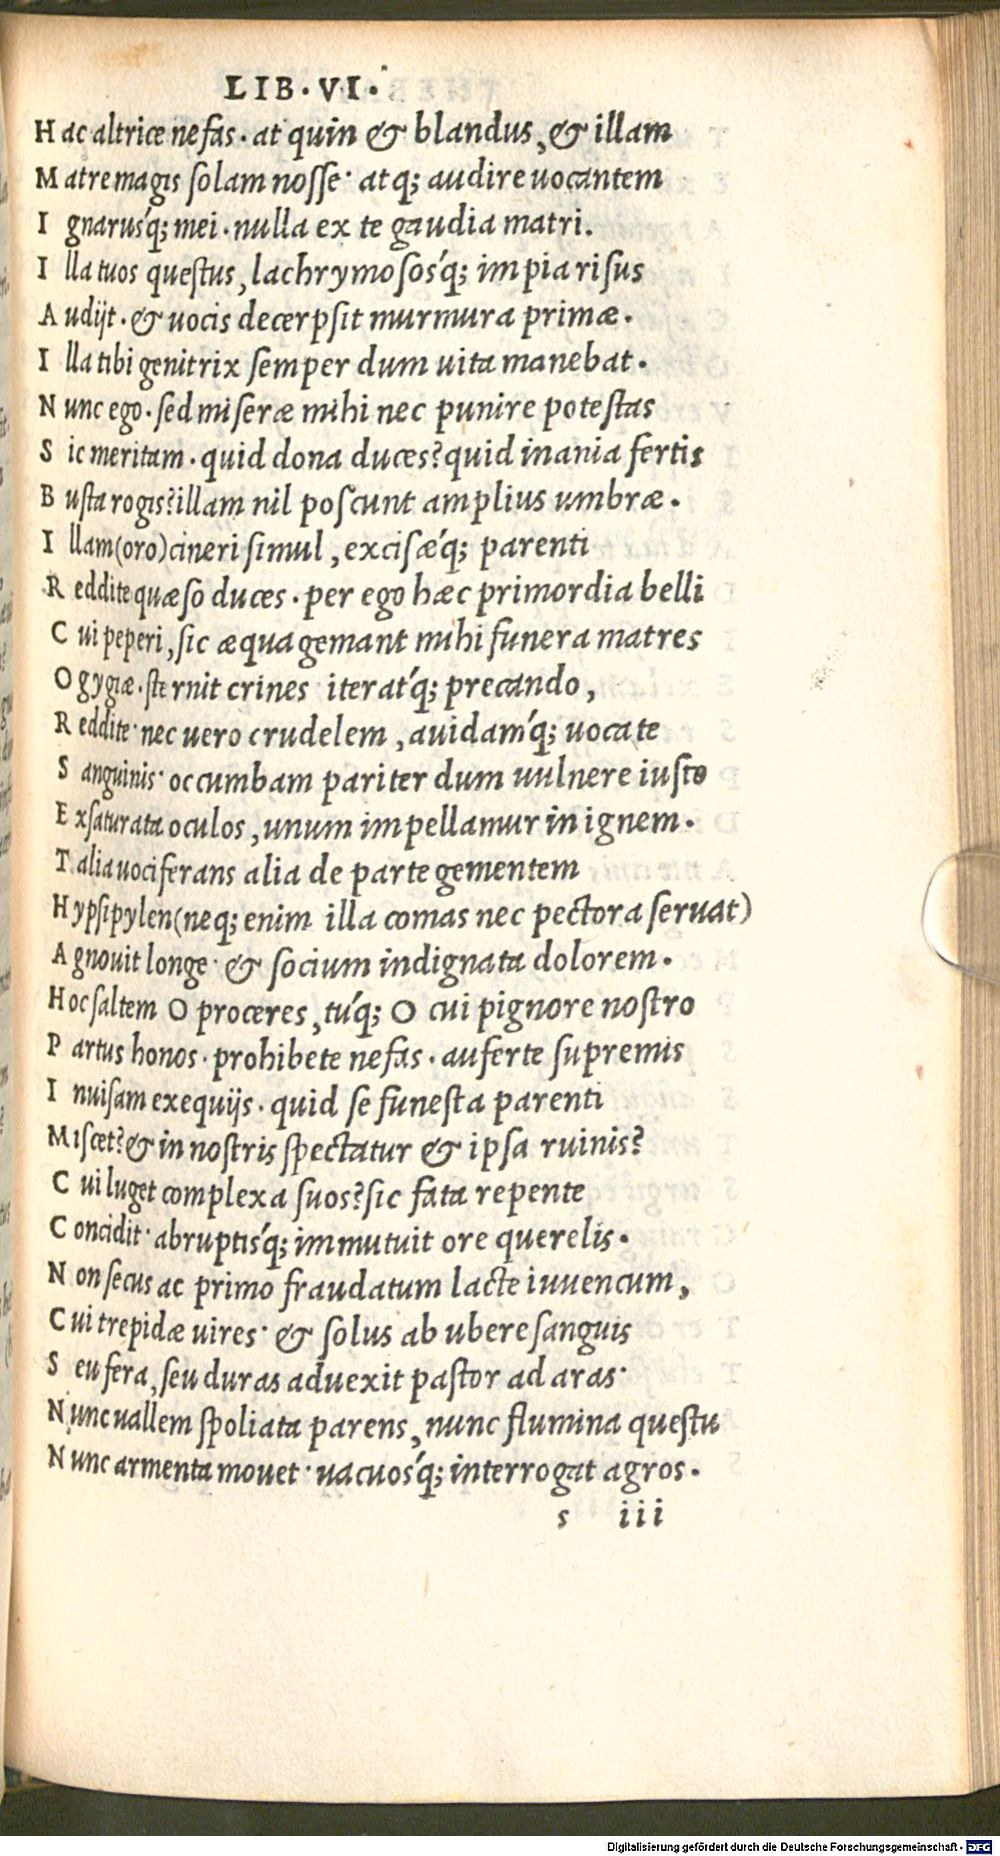 LIB. VI.
H ac altrice nefas. at quin & blandus, & illam
M atre magis solam nosse· atq; audire uocantem
I gnarusq́; mei. nulla ex te gaudia matri.
I lla tuos questus, lachrymososq́; impia risus
A udijt. & uocis decerpsit murmura primæ.
I lla tibi genitrix semper dum uita manebat.
N unc ego. sed miseræ mihi nec punire potestas
S ic meritam. quid dona duces? quid inania fertis
B usta rogis? illam nil poscunt amplius umbræ.
I llam (oro) cineri simul, excisæq́; parenti
R eddite quæso duces. per ego hæc primordia belli
C ui peperi, sic æqua gemant mihi funera matres
O gygiæ. sternit crines iteratq́; precando,
R eddite· nec uero crudelem, auidamq́; uocate
S anguinis· occumbam pariter dum uulnere iusto
E xsaturata oculos, unum impellamur in ignem.
T alia uociferans alia de parte gementem
H ypsipylen (neq; enim illa comas nec pectora seruat)
A gnouit longe· & socium indignata dolorem.
H oc saltem O proceres, túq; O cui pignore nostro
P artus honos. prohibete nefas. auferte supremis
I nuisam exequijs. quid se funesta parenti
M iscet? & in nostris spectatur & ipsa ruinis?
C ui luget complexa suos? sic fata repente
C oncidit· abruptisq́; immutuit ore querelis.
N on secus ac primo fraudatum lacte iuuencum,
C ui trepidæ uires· & solus ab ubere sanguis
S eu fera, seu duras aduexit pastor ad aras·
N unc uallem spoliata parens, nunc flumina questu
N unc armenta mouet· uacuosq́; interrogat agros.
s iii
Digitalisierung gefördert durch die Deutsche Forschungsgemeinschaft - DFG